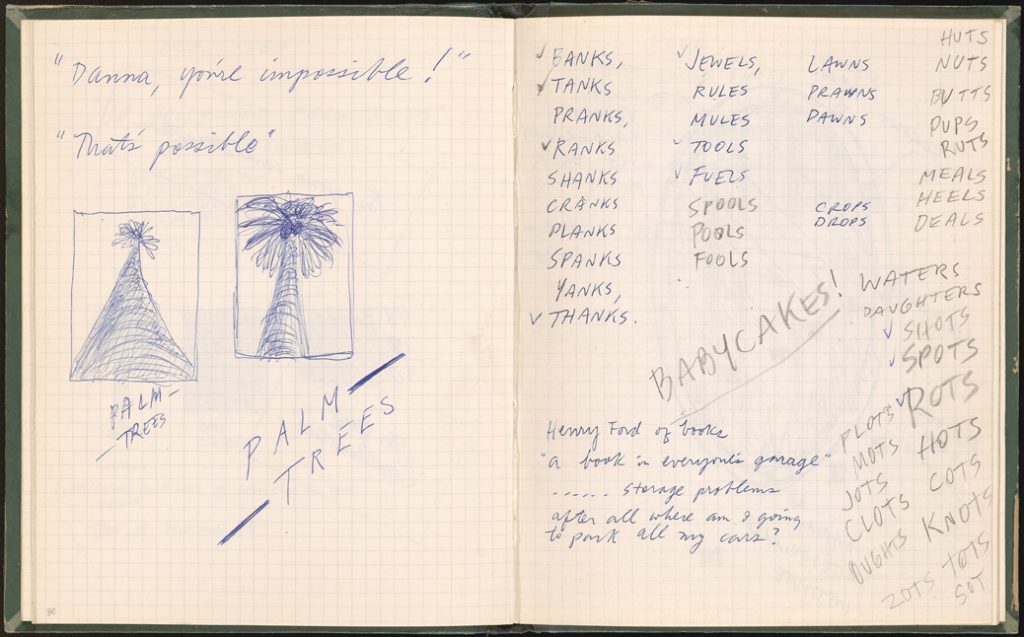 "Danna, you're impossible!"
"That's possible"
PALM-
-TREES
PALM-
-TREES
30
BANKS,
TANKS
PRANKS,
RANKS
SHANKS
CRANKS
PLANKS
SPANKS
YANKS,
THANKS.
JEWELS,
RULES
MULES
TOOLS
FUELS
SPOOLS
POOLS
FOOLS
LAWNS
PRAWNS
DAWNS
CROPS
DROPS
HUTS
NUTS
BUTTS
PUPS
RUTS
MEALS
HEELS
DEALS
WATERS
DAUGHTERS
SHOTS
SPOTS
ROTS
HOTS
COTS
KNOTS
TOTS
SOT
PLOTS
MOTS
JOTS
CLOTS
OUGHTS
ZOTS
BABYCAKES!
Henry Ford of books
"a book in everyone's garage"
...... storage problems
after all where am I going
to park all my cars?